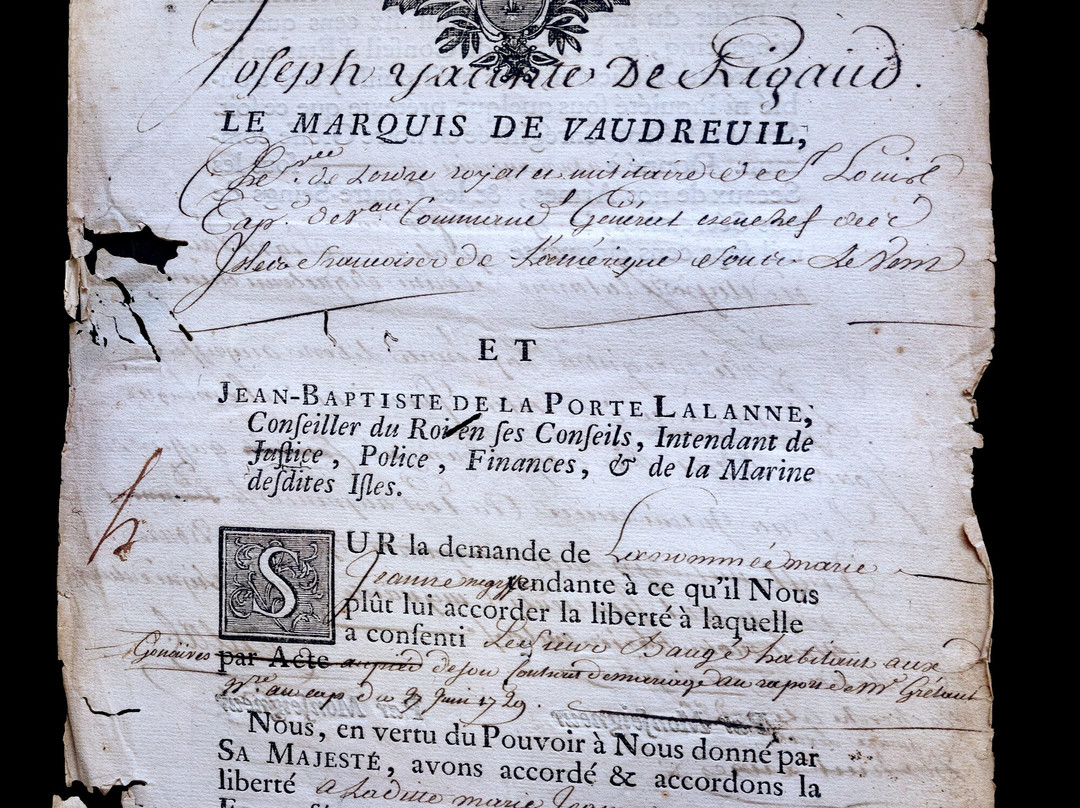 Joseph Yacinte De Rigaud.
LE MARQUIS DE VAUDREUIL,
Che.er de Lordre royal et militaire de St Louis
Cap.ne de Vau Commend.t Général enchef des
Isles francoises de Lamérique Sous Le Vent
ET
JEAN-BAPTISTE DE LA PORTE LALANNE,
Conſeiller du Roi en ſes Conſeils, Intendant de
Juſtice, Police, Finances, & de la Marine
deſdites Iſles.
SUR la demande de La nommée marie
Jeanne negresse tendante à ce qu'il Nous
plût lui accorder la liberté à laquelle
a conſenti Le Sieur Baugé habitant aux
Gonaives par Acte au pied de son Contract de mariage au raport de Me Grétaut
Nre au cap du 27 Juin 1729.
Nous, en vertu du Pouvoir à Nous donné par
SA MAJESTÉ, avons accordé & accordons la
liberté a Laditte marie Jean